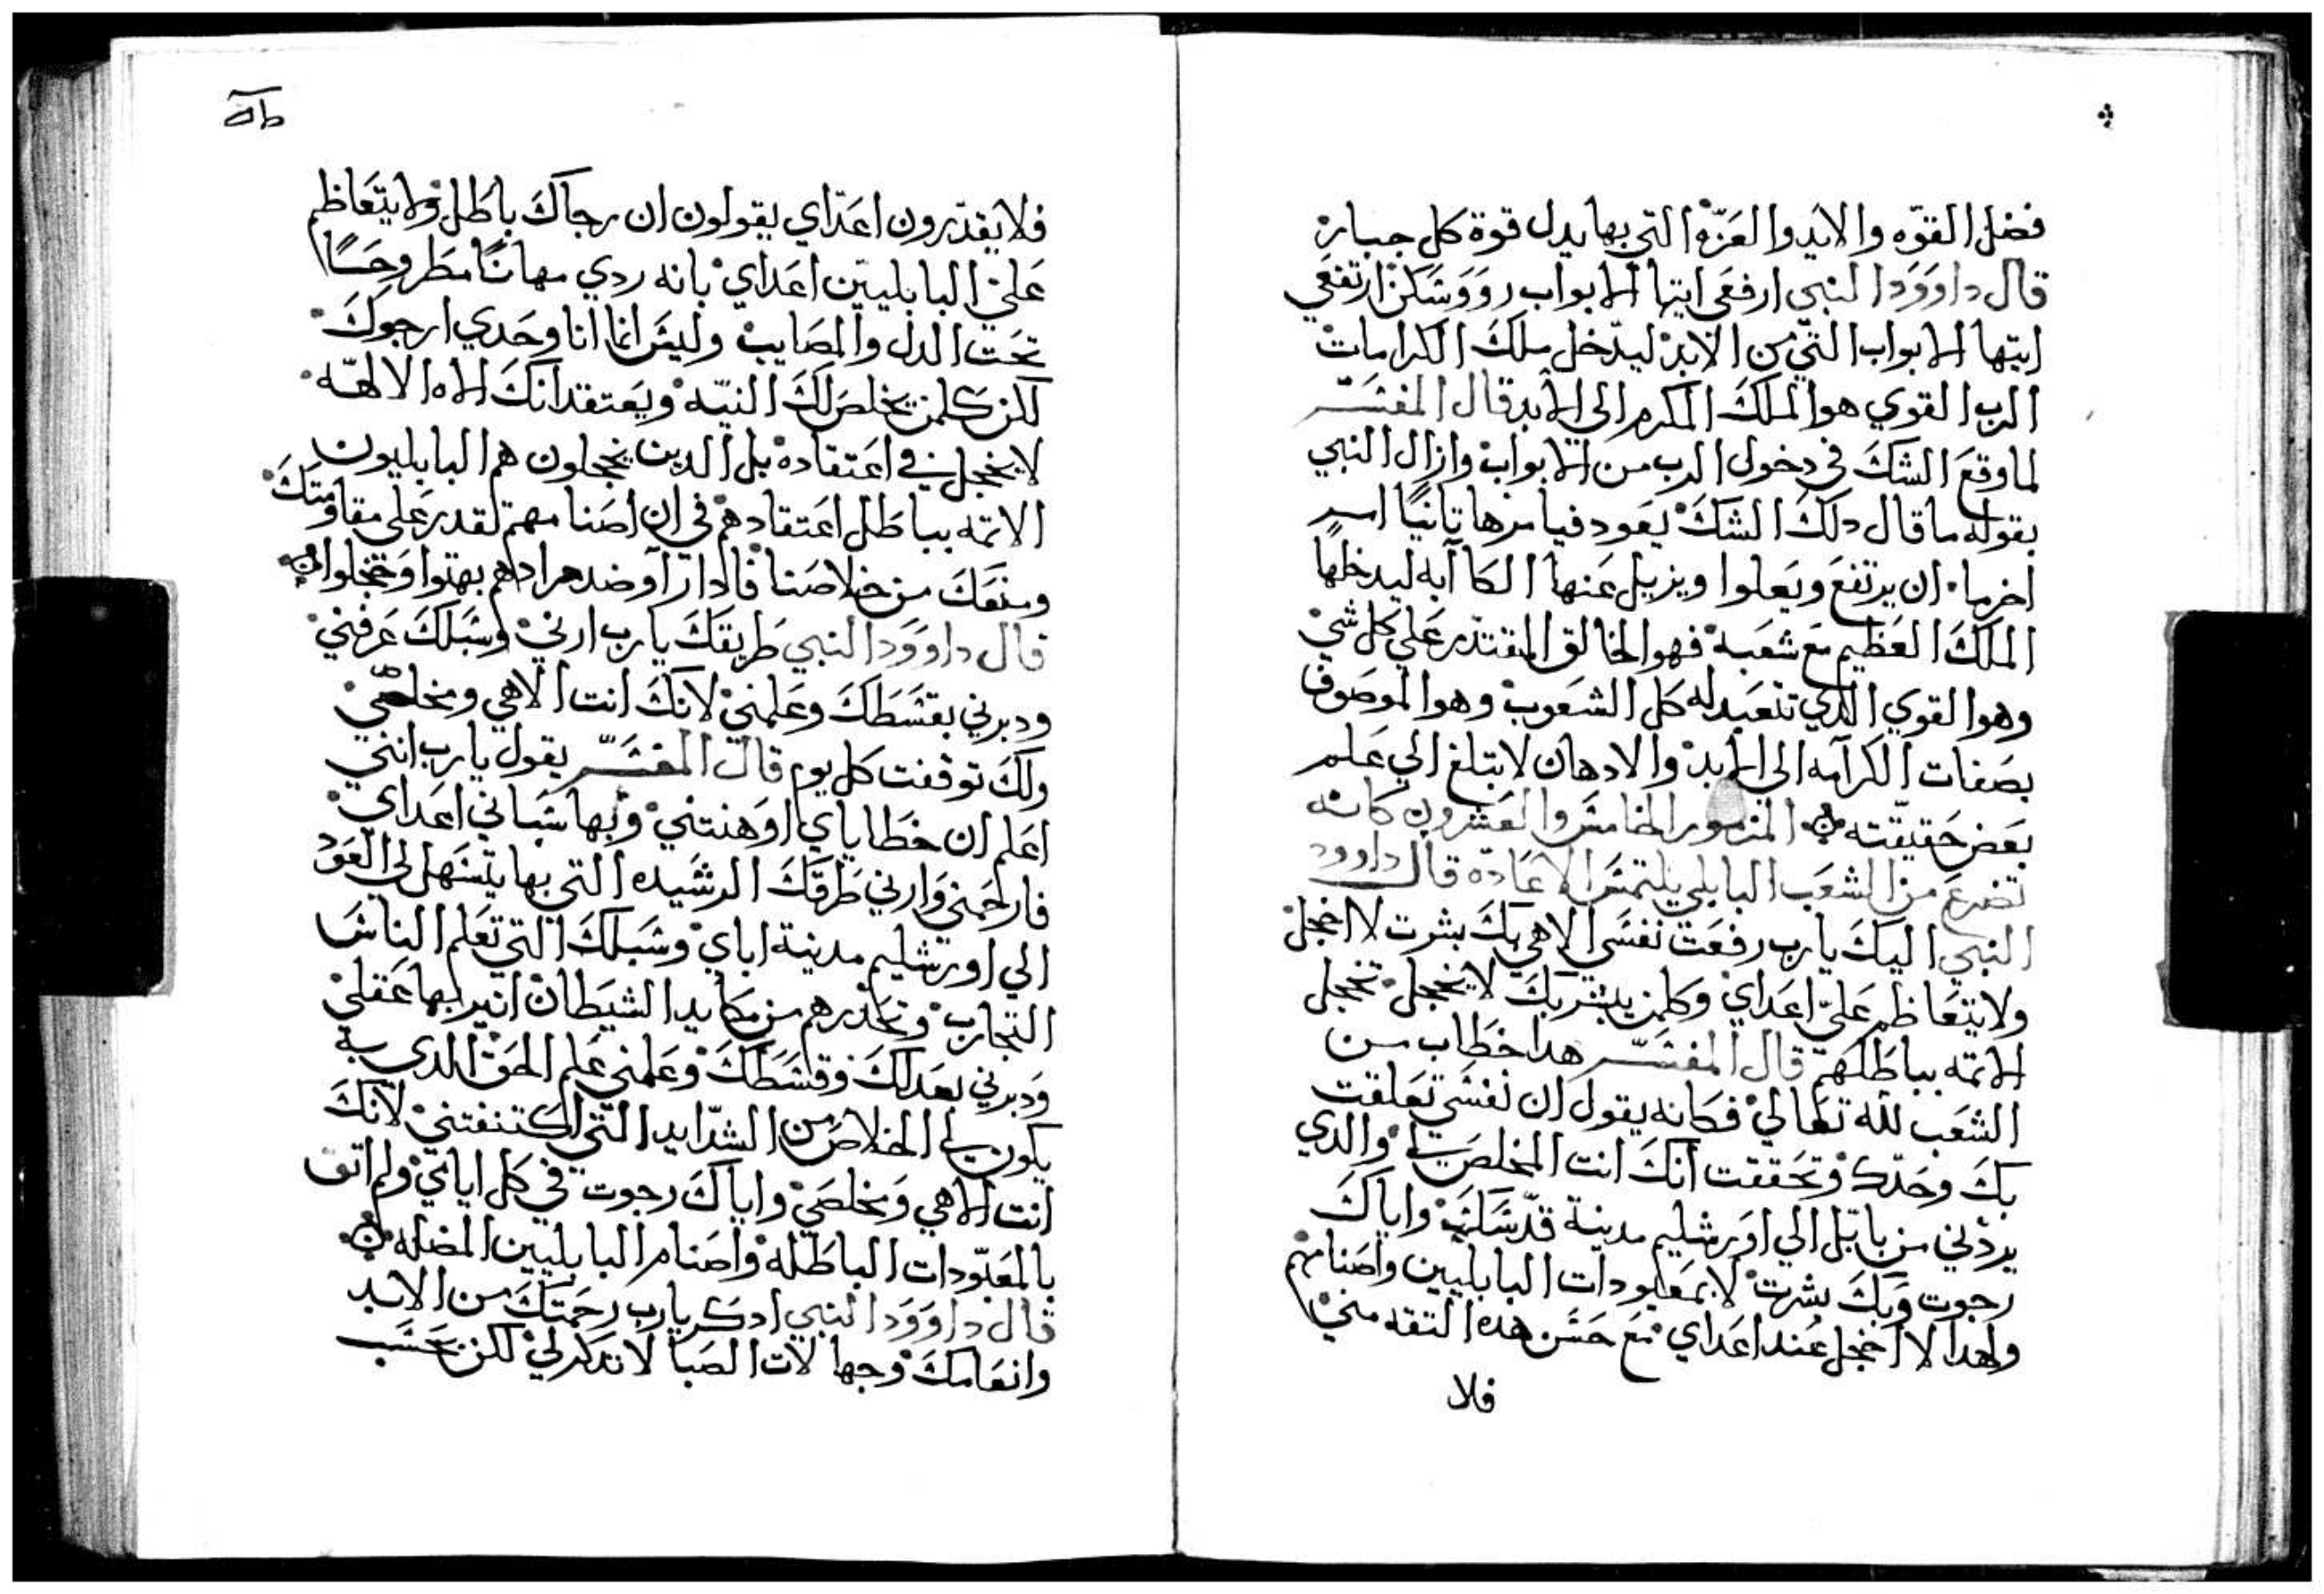 فضل القوه والايد والعزة التي بها يدل قوة كل جبار
قال داوود النبي ارفعي ايتها الابواب روووسكن ارتفعي
ايتها الابواب التي من الابد ليدخل ملك الكرامات
الرب القوي هو الملك المكرم الى الابد قال المفسر
لما وقع الشك في دخول الرب من الابواب وازال النبي
بقوله ما قال دلك الشك يعود فيامرها تانيًا امر
اخرما ان يرتفع ويعلوا ويزيل عنها الكاآبه ليدخلها
الملك العظيم مع شعبه فهو الخالق المقتدر علي كل شي
وهو القوي الدي تتعبد له كل الشعوب وهو الموصوف
بصفات الكرامه الى الابد والادهان لا تبلغ الي علم
بعض حقيقته المزمور الخامس والعشرون كانه
تضرع من الشعب البابلي يلتمس الاعاده قال داوود
النبي اليك يا رب رفعت نفسي الاهي بك بشرت لا اخجل
ولا يتعاظم عليّ اعداي وكلمن يبشر بك لا يخجل تخجل
الاتمه بباطلهم قال المفسر هدا خطاب من
الشعب لله تعالي فكانه يقول ان نفسي تعلقت
بك وحدك وتحققت انك انت المخلص لي والدي
يردني من بابل الي اورشليم مدينة قدسك واياك
رجوت وبك بشرت لا بمعبودات البابليين واصنامهم
ولهدا لا اخجل عند اعداي مع حسن هده التقه مني
فلا
طه
فلا يقدرون اعداي يقولون ان رجاك باطل ولا يتعاظم
علي البابليين اعداي بانه ردي مهانًا مطروحًا
تحت الدل والمصايب وليس انما انا وحدي ارجوك
لكن كلمن يخلص لك النيه ويعتقد انك الاه الالهه
لا يخجل في اعتقاده بل الدين يخجلون هم البابليون
الاتمه بباطل اعتقادهم في ان اصنامهم لقدر علي مقاومتك
ومنعك من خلاصنا فادا راوضد مرادهم بهتوا وخجلوا
قال داوود النبي طريقك يا رب ارني وسبلك عرفني
ودبرني بقسطك وعلمني لانك انت الاهي ومخلصي
ولك توقفت كل يوم قال المفسر يقول يا رب انني
اعلم ان خطاياي اوهنتني وبها سباني اعداي
فارحمني وارني طرقك الرشيده التي بها يتسهل لي العود
الي اورشليم مدينة اباي وسبلك التي تعلم الناس
التجارب وتحدرهم من مكايد الشيطان انير بها عقلي
ودبرني بعدلك وقسطك وعلمني علم الحق الدي به
يكون لي الخلاص من الشدايد التي اكتنفتني لانك
انت الاهي ومخلصي واياك رجوت في كل ايامي ولم اتق
بالمعبودات الباطله واصنام البابليين المضله
قال داوود النبي ادكر يا رب رحمتك من الابد
وانعامك وجهالات الصبا لا تدكر لي لكن بحسب